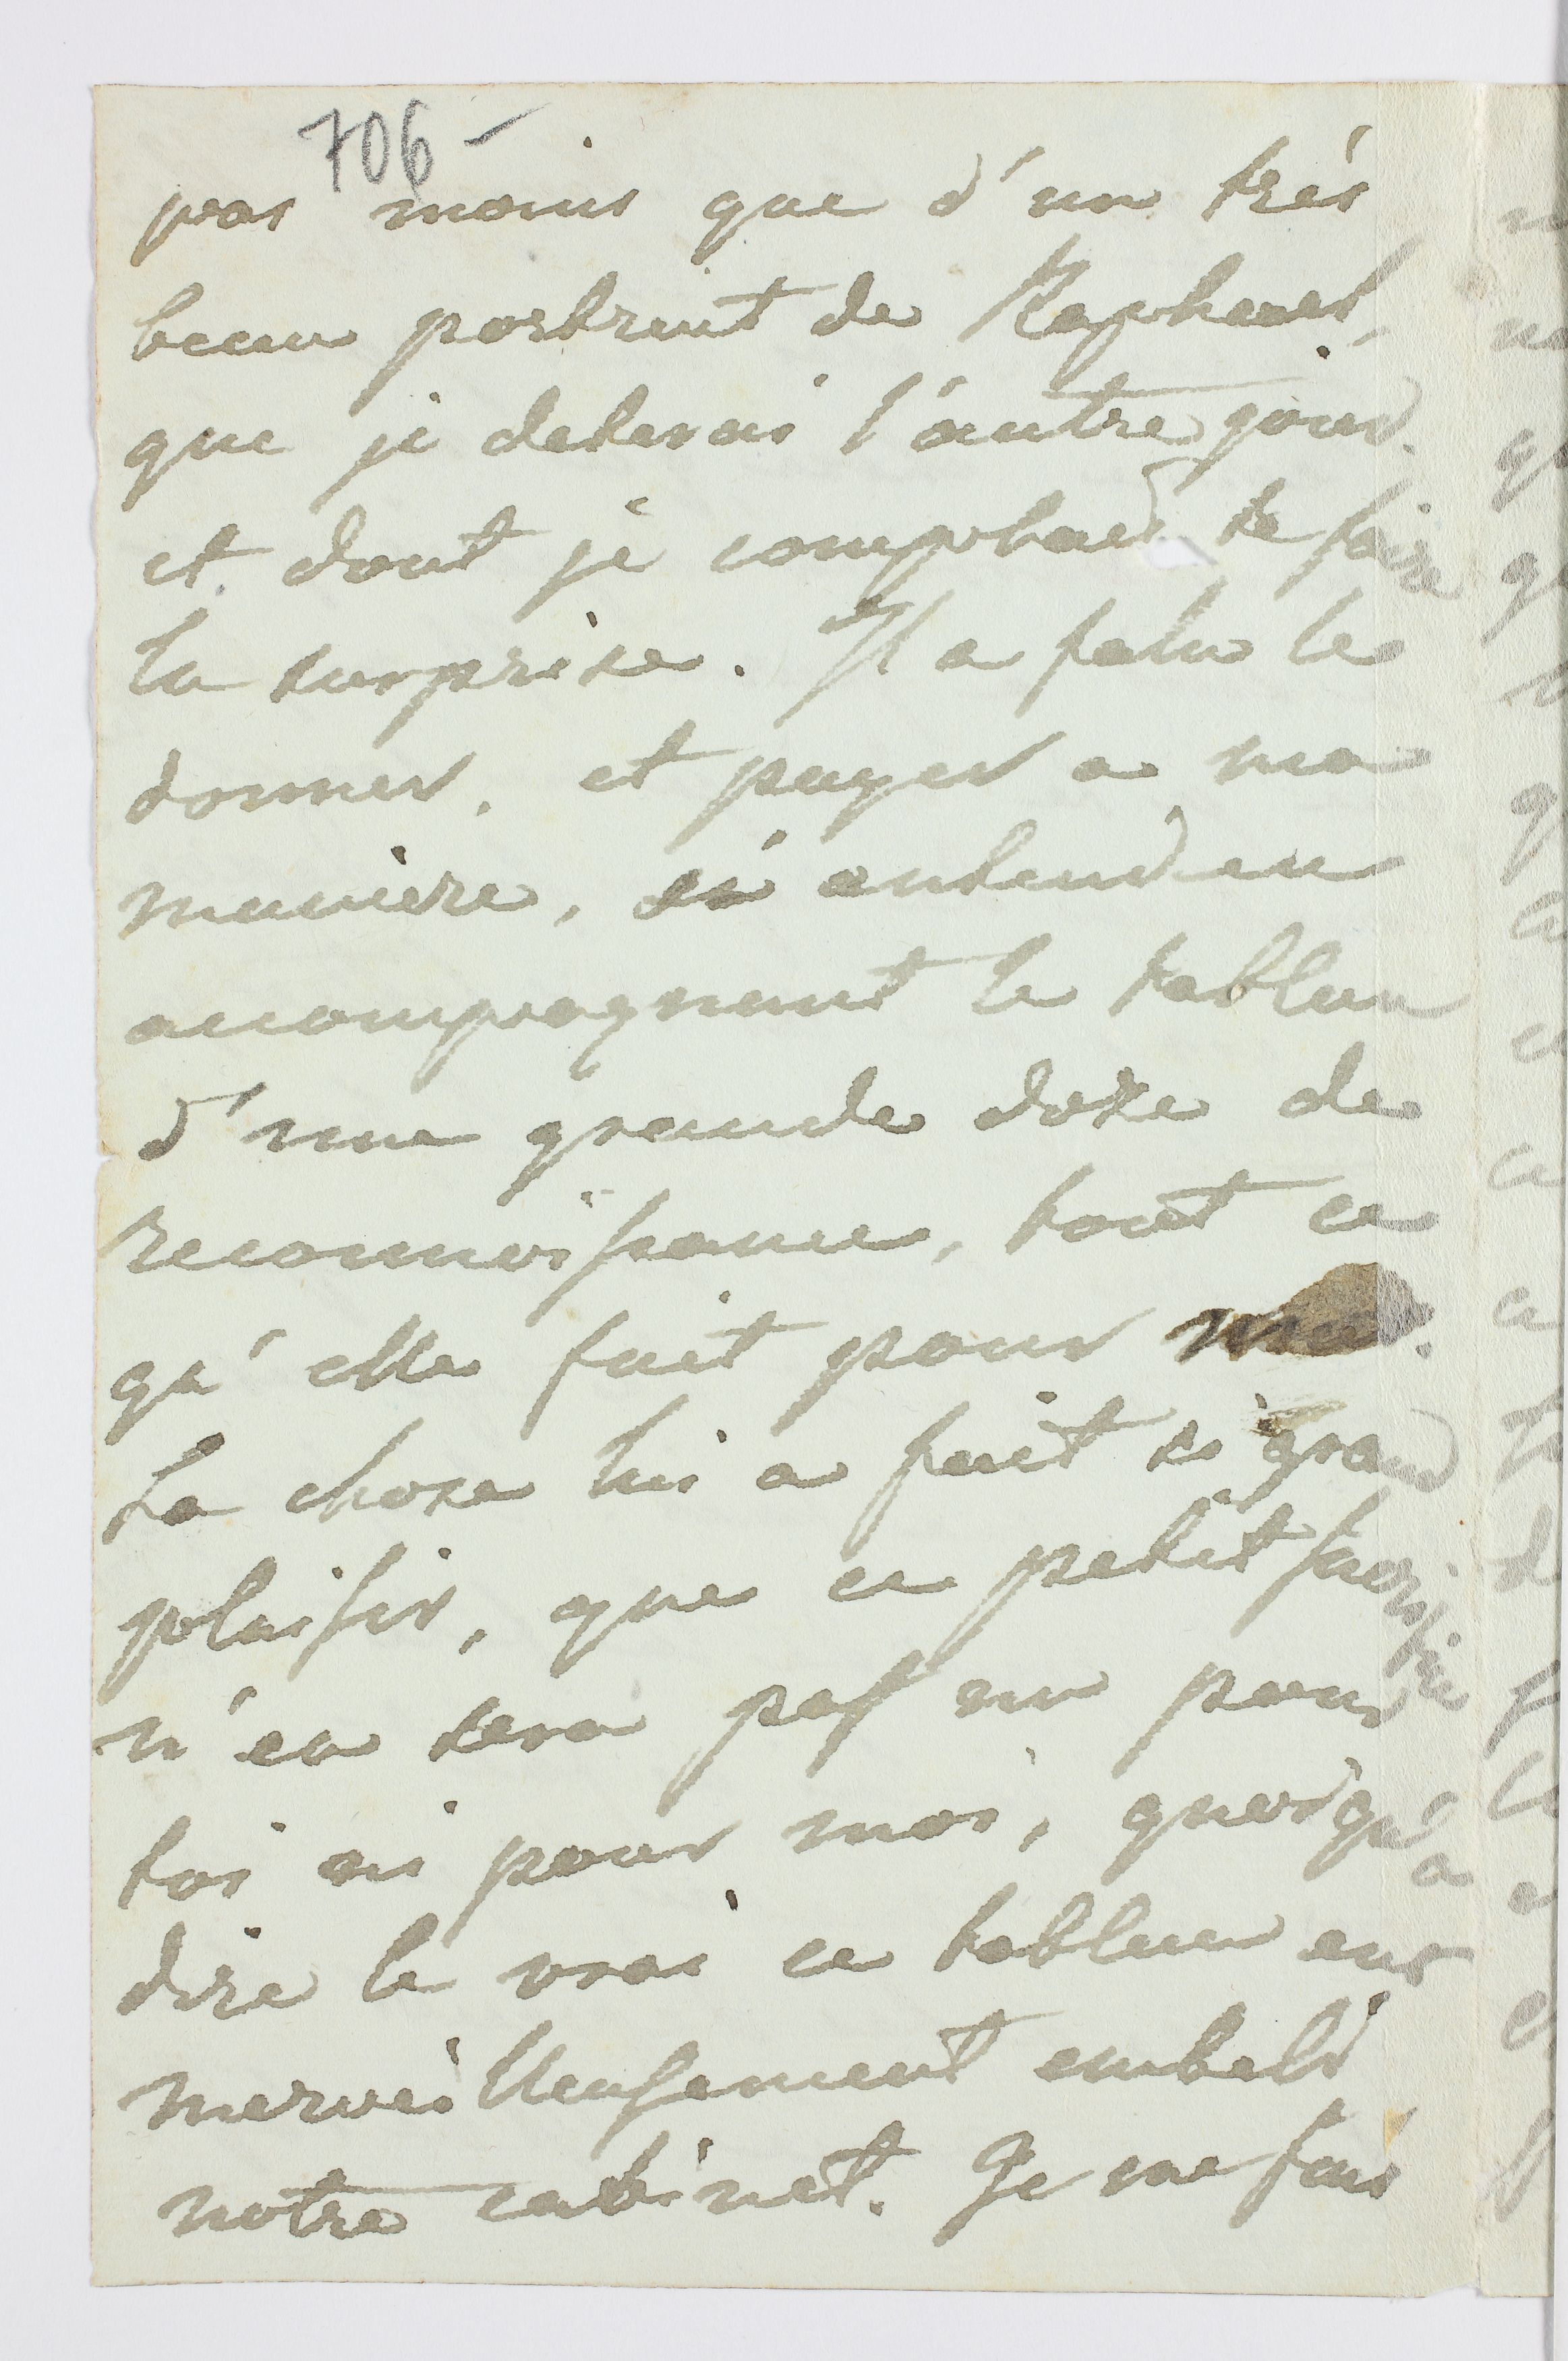 706 -
pas moins que d'un très
beau portrait de Raphael,
que je deterrai l'autre jour.
et dont je comptais te faire
la surprise. Il a falu le
donner, et payer a ma
maniere, si entend en
accompagnant le tableau
d'une grande dose de
reconnoissance, tout ce
qu'elle fait pour moi.
La chose lui a fait si grand
plaisir, que ce petit sacrifice
n'en sera pas un pour
toi ni pour moi, quoiqu'à
dire le vrai ce tableau eut
merveilleusement embeli
notre cabinet. Je me fais